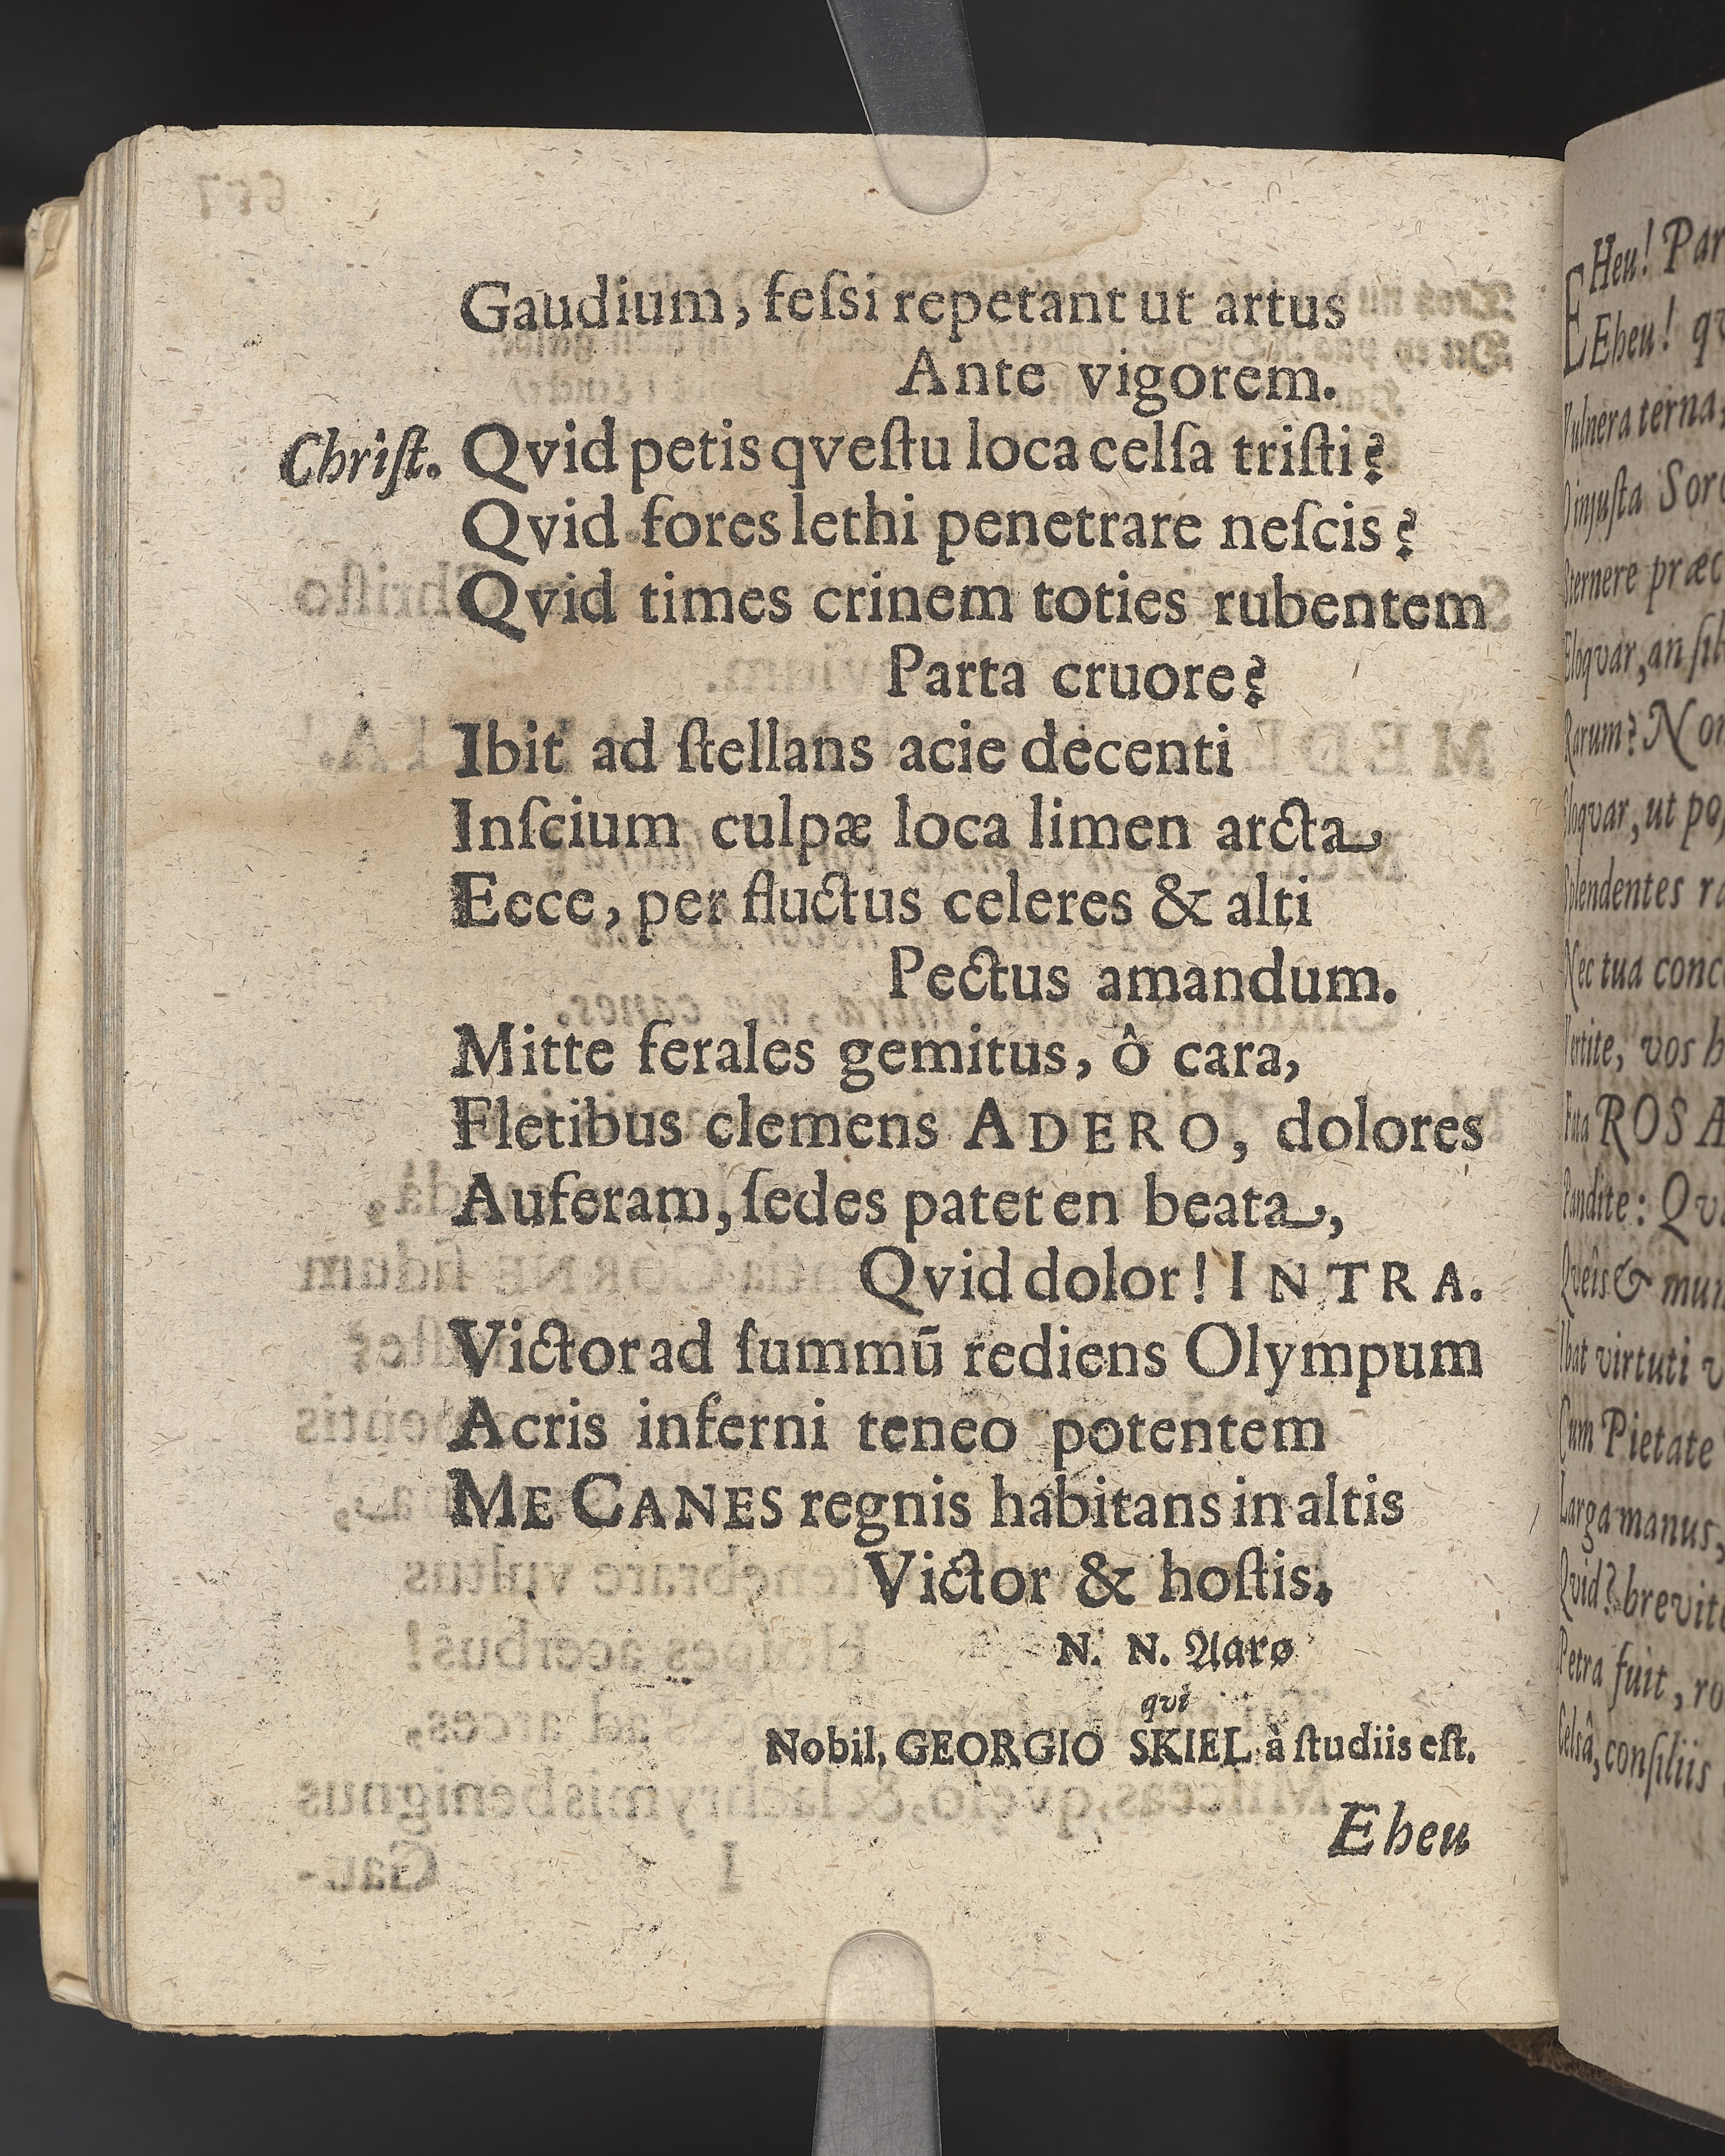 Gaudium, feſsi repetant ut artus
Ante vigorem.
Chriſt. Qvid petis qveſtu loca celſa triſti?
Qvid fores lethi penetrare neſcis?
Qvid times crinem toties rubentem
Parta cruore?
Ibit ad ſtellans acie decenti
Inſcium culpæ loca limen arcta
Ecce, per fluctus celeres & alti
Pectus amandum.
Mitte ferales gemitus, ô cara,
Fletibus clemens ADERO, dolores
Auferam, ſedes patet en beata,
Qvid dolor! INTRA.
Victor ad ſummū rediens Olympum
Acris inferni teneo potentem
ME CANES regnis habitans in altis
Victor & hoſtis.
N. N. Aarø
qvi
Nobil. GEORGIO SKIEL à ſtudiis eſt.
Eheu
EHeu! Par
Eheu! qv
Vulnera terna,
O injuſta Soro
Sternere præc
Eloqvar, an ſil
Rarum? Non
Eloqvar, ut po
Splendentes ra
Nec tua conc
Vertite, vos h
Fata ROSA
Pandite: Qva
Qveis & mun
Ibat virtuti v
Cum Pietate
Larga manus,
Qvid? brevit
Petra fuit, ro
Celsâ, conſiliis